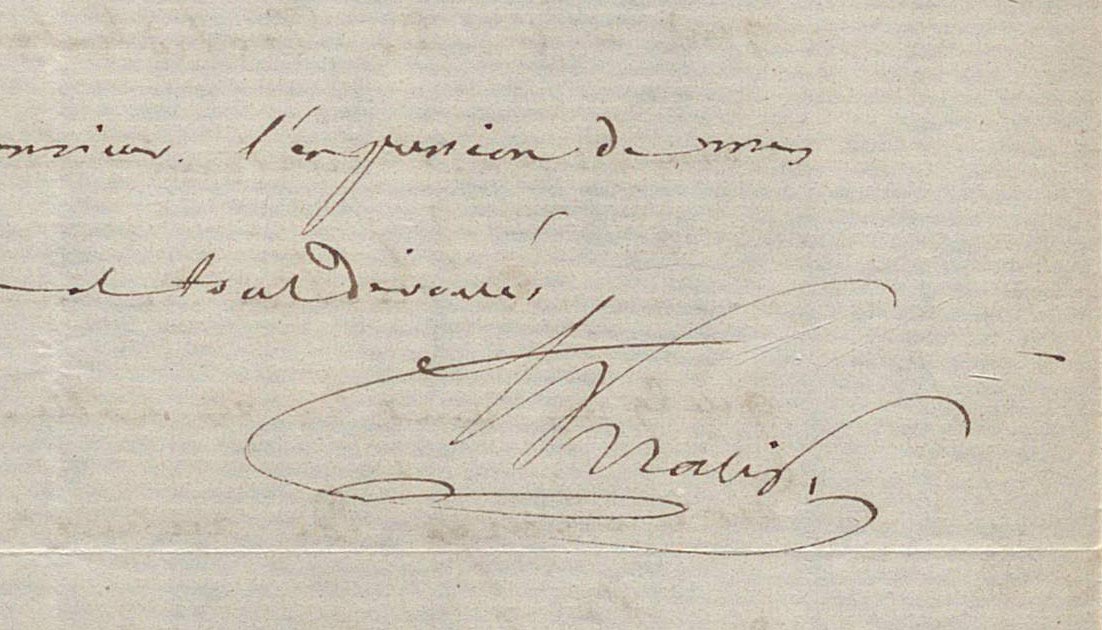 onsieur. l'expression de mes
et tout dévoués